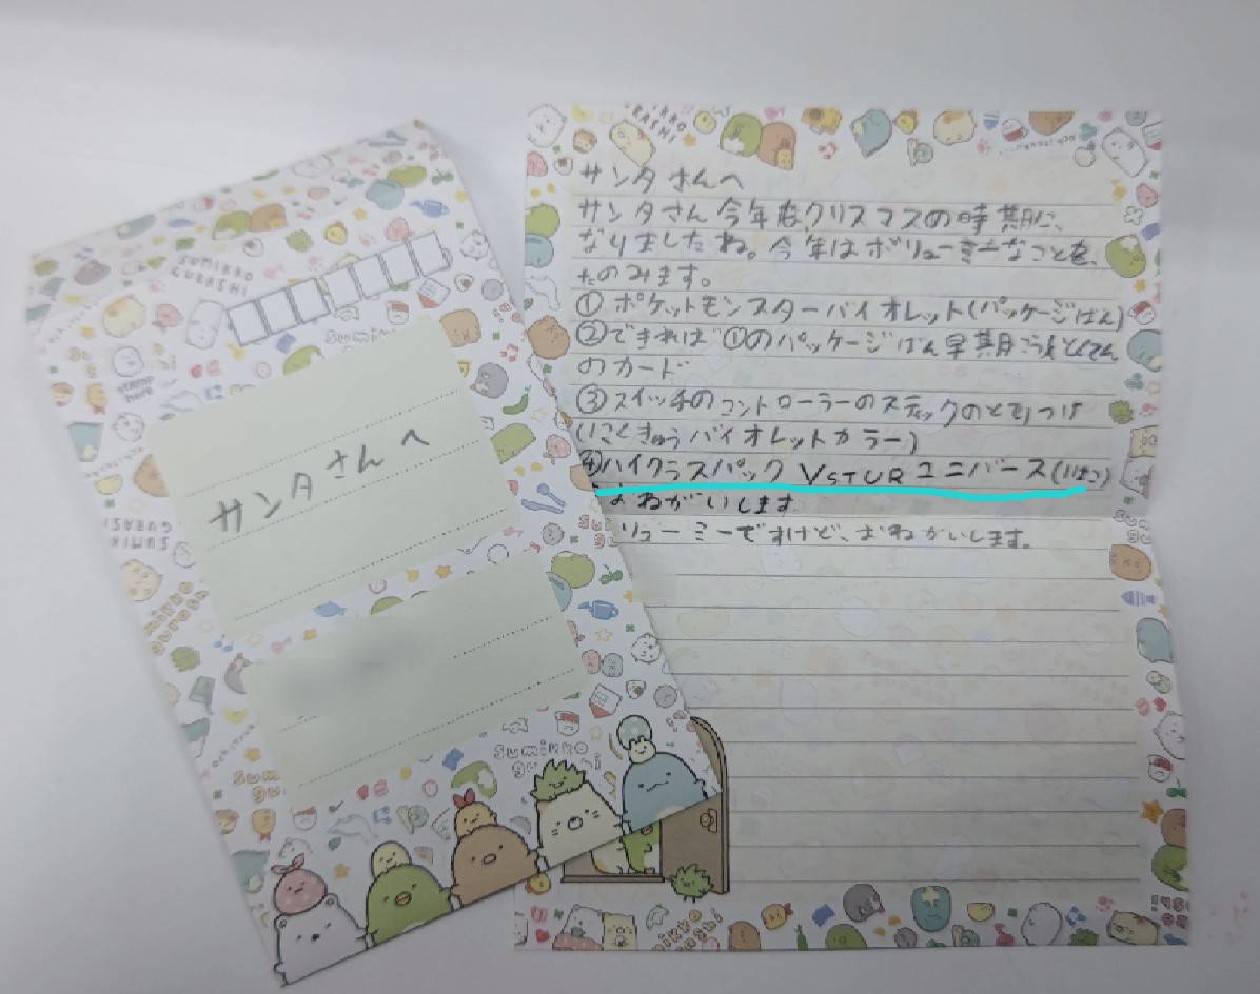 サンタさんへ
サンタさんへ
サンタさん今年もクリスマスの時期に、
なりましたね。今年はボリューミーなことを、
たのみます。
①ポケットモンスターバイオレット(パッケージばん)
②できれば①のパッケージばん早期
のカード
③スイッチのコントローラーのスティックのとりつけ
バイオレットカラー)
④ハイクラスパック VSTUR ユニバース(はこ)
おねがいします
リューミーですけど、おねがいします。
SUMIKKO
GURASHI
sumikko
gurashi